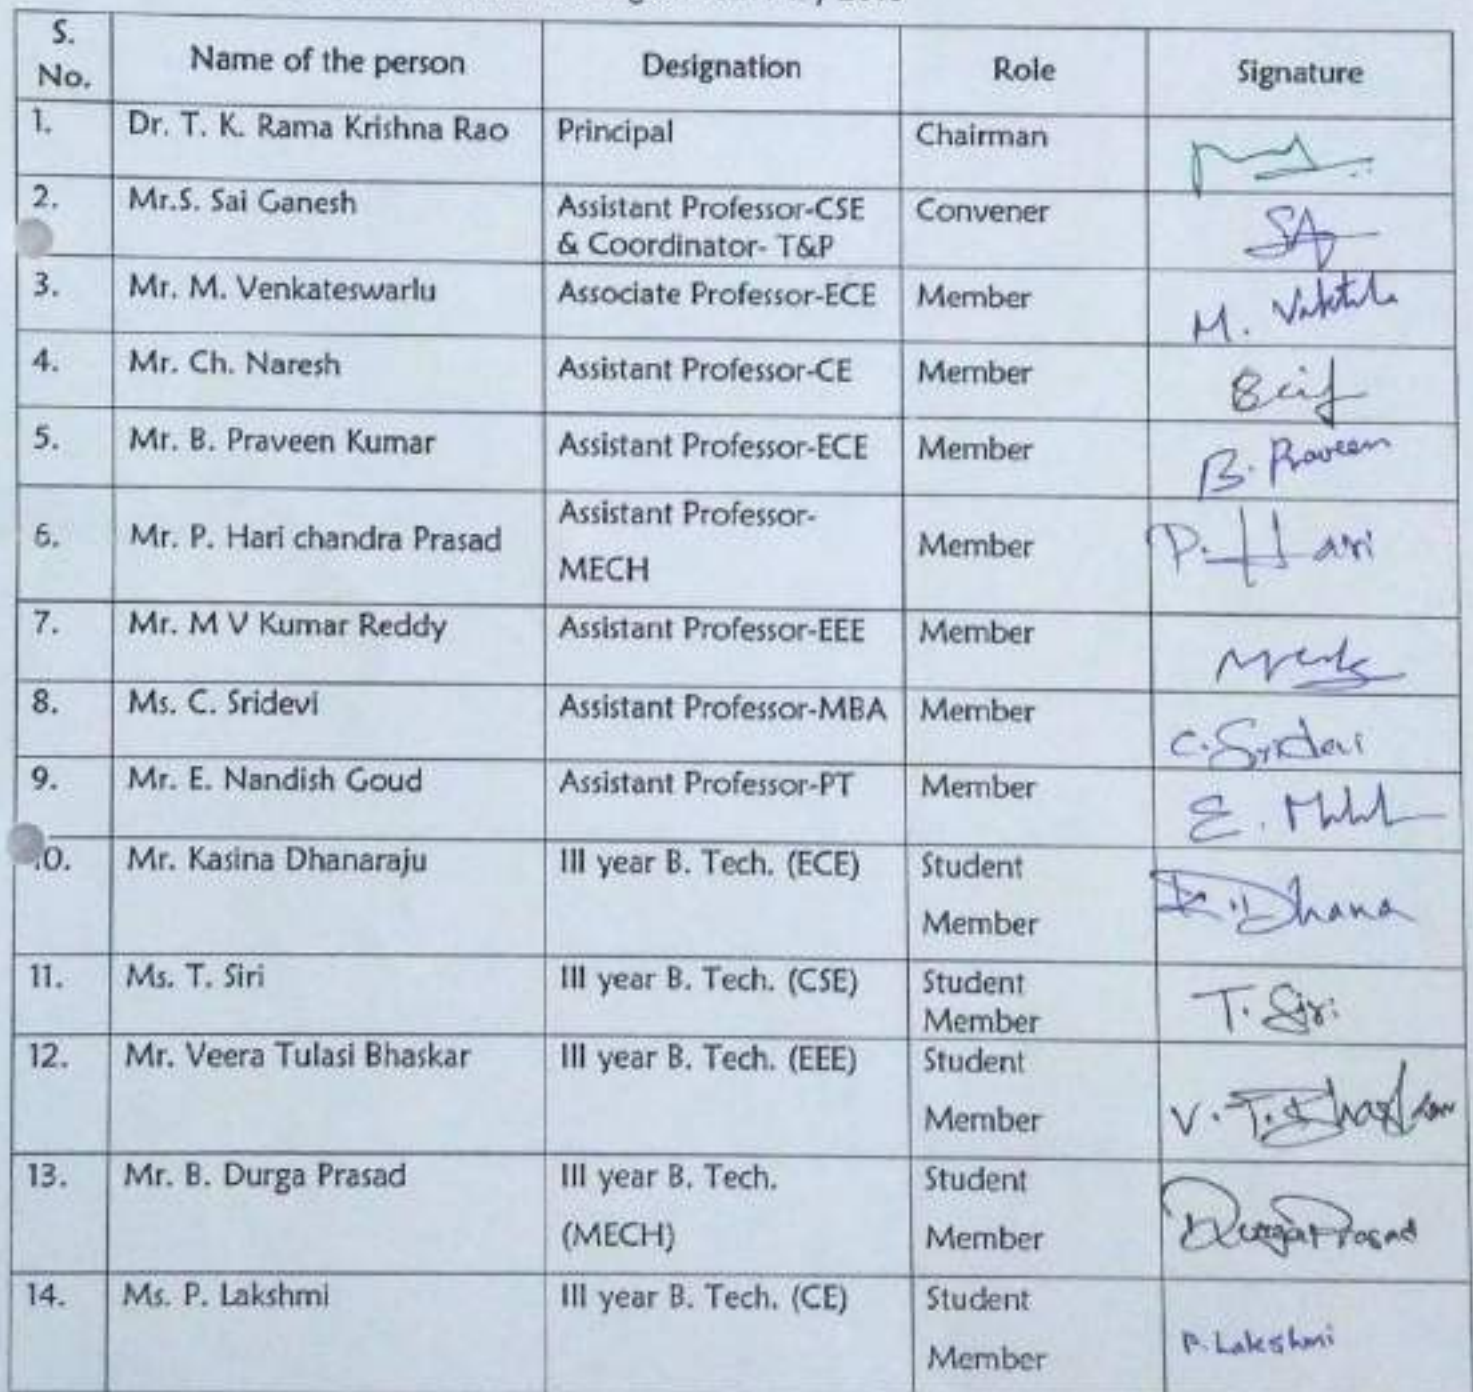 S. No. Name of the person Designation Role Signature
1. Dr. T. K. Rama Krishna Rao Principal Chairman
2. Mr.S. Sai Ganesh Assistant Professor-CSE Convener
& Coordinator- T&P
3. Mr. M. Venkateswarlu Associate Professor-ECE Member M.
4. Mr. Ch. Naresh Assistant Professor-CE Member
5. Mr. B. Praveen Kumar Assistant Professor-ECE Member B. Praveen
6. Mr. P. Hari chandra Prasad Assistant Professor- Member P. Hari
MECH
7. Mr. M V Kumar Reddy Assistant Professor-EEE Member
8. Ms. C. Sridevi Assistant Professor-MBA Member C. Sridevi
9. Mr. E. Nandish Goud Assistant Professor-PT Member E.
10. Mr. Kasina Dhanaraju III year B. Tech. (ECE) Student K. Dhana
Member
11. Ms. T. Siri III year B. Tech. (CSE) Student T. Siri
Member
12. Mr. Veera Tulasi Bhaskar III year B. Tech. (EEE) Student
Member V. T. Bhaskar
13. Mr. B. Durga Prasad III year B. Tech. Student
(MECH) Member Durga Prasad
14. Ms. P. Lakshmi III year B. Tech. (CE) Student
Member P. Lakshmi